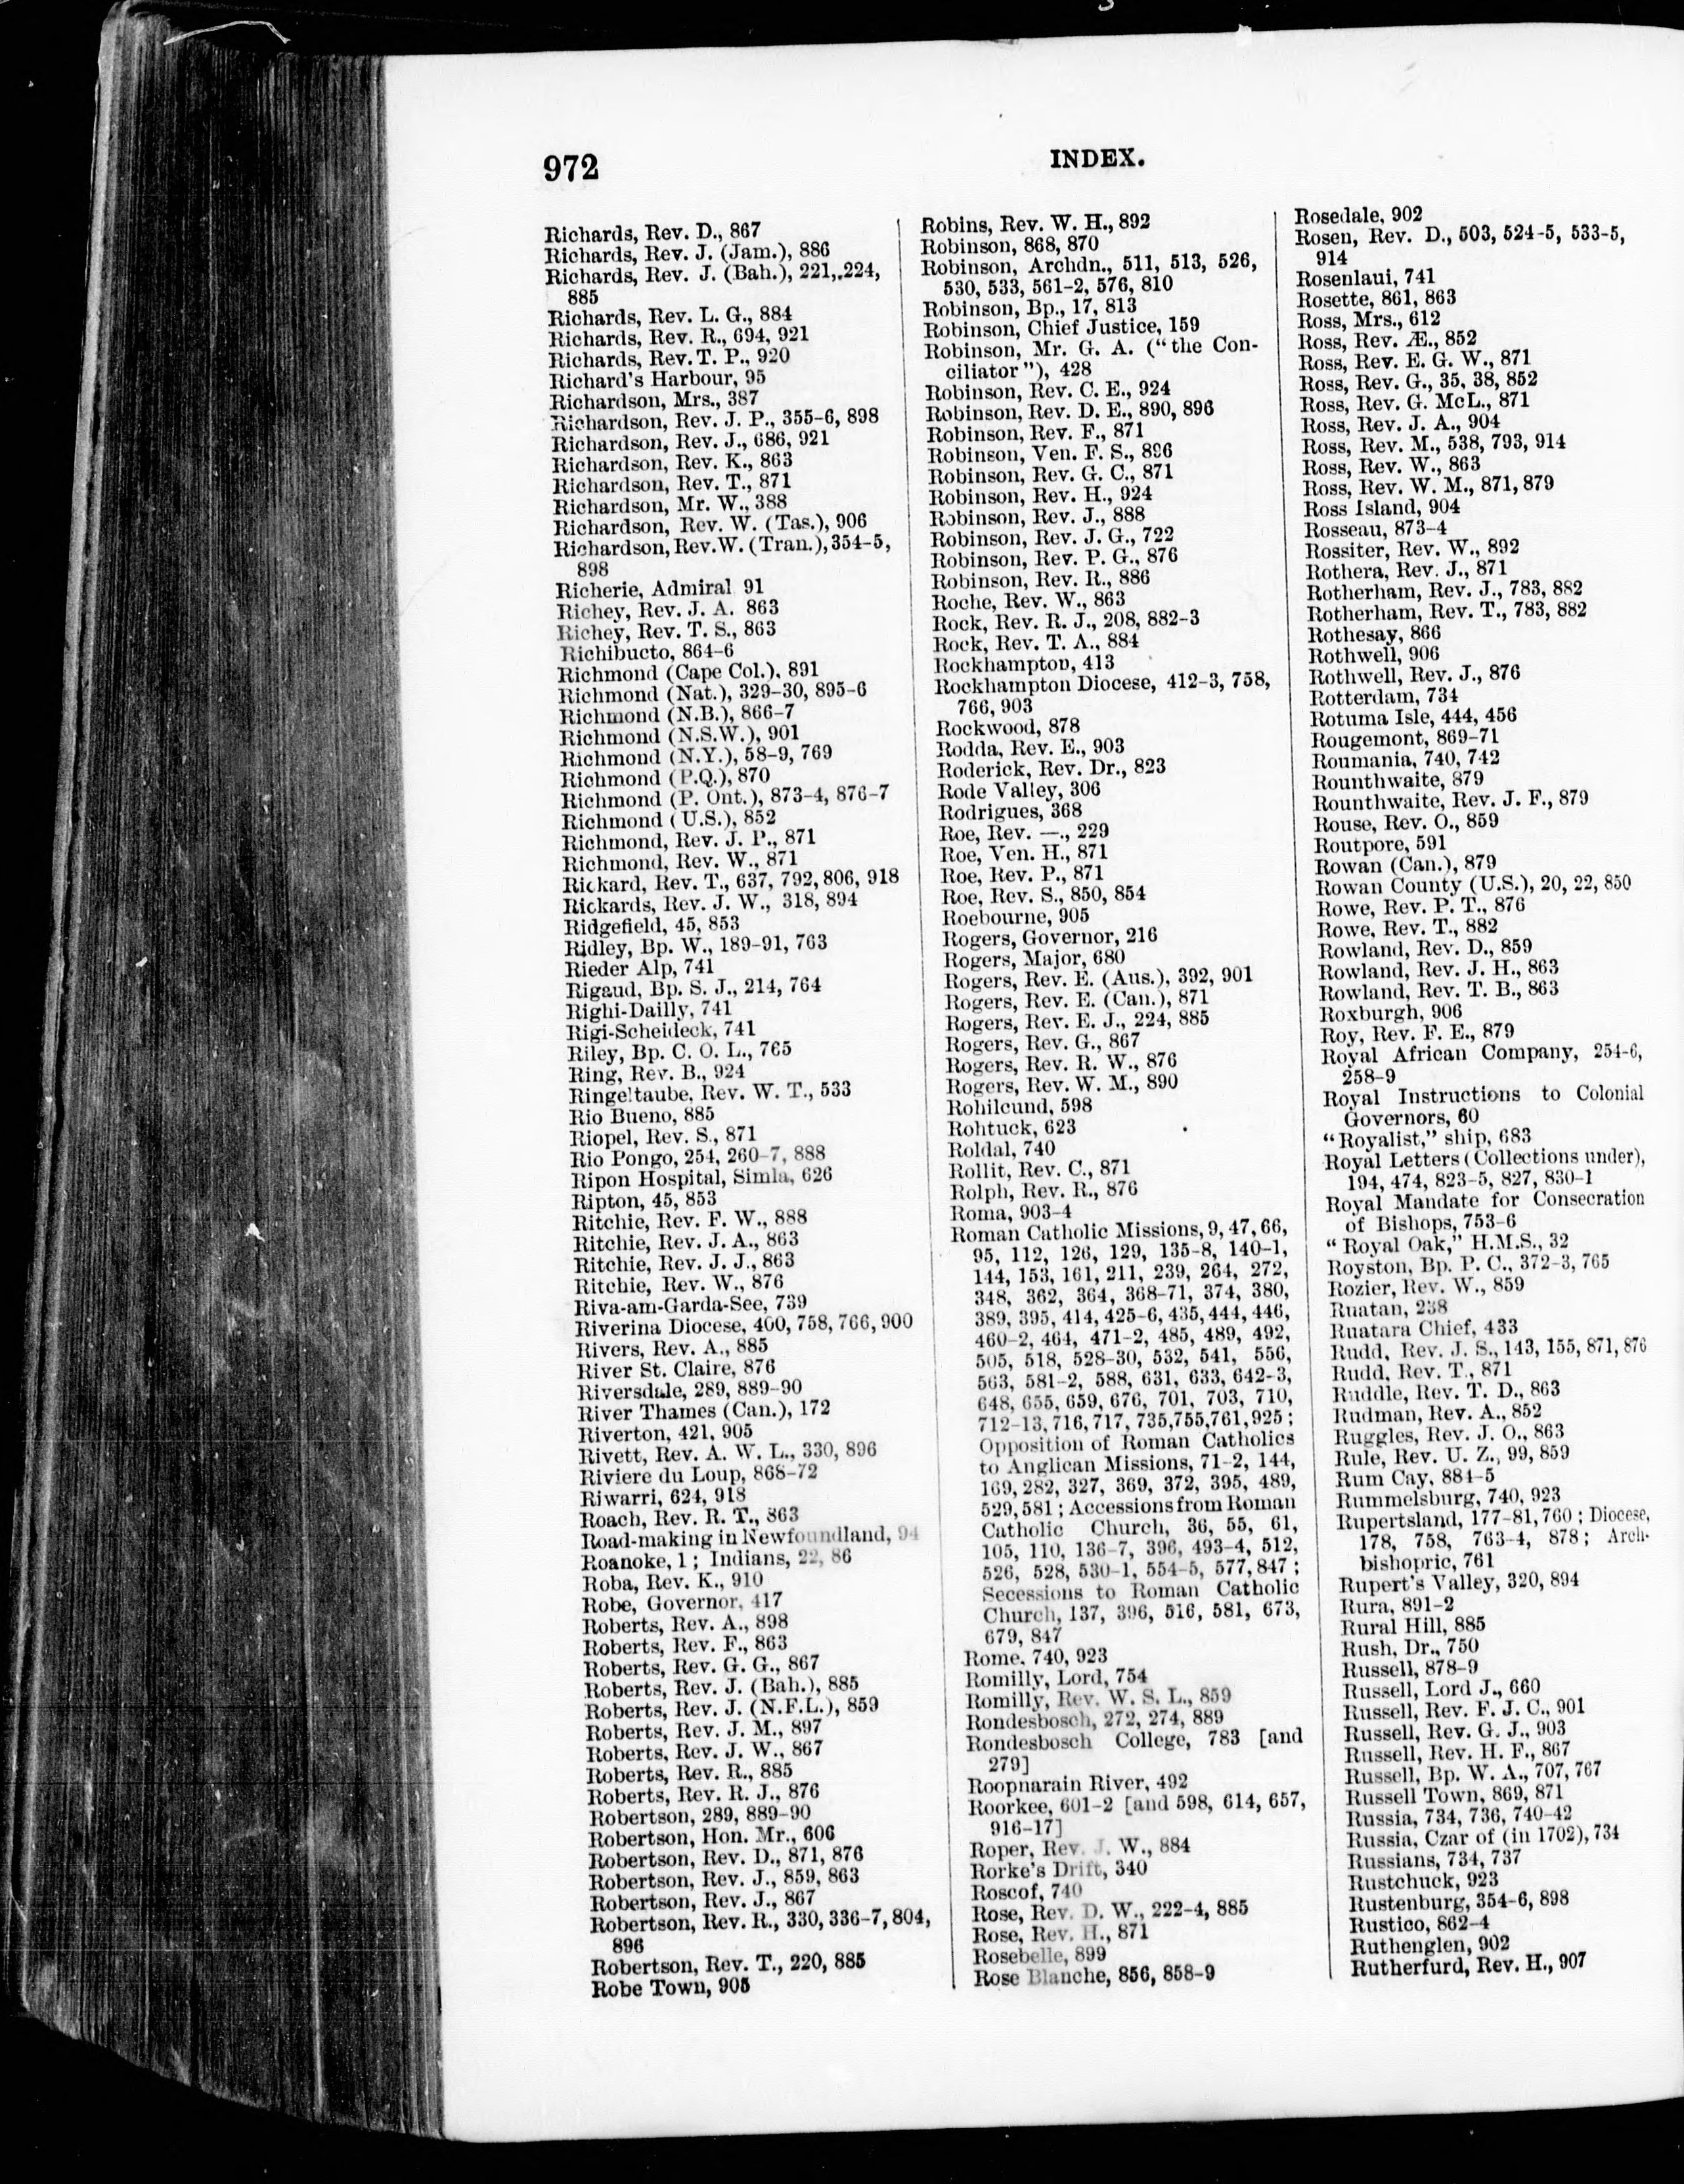 972
INDEX.
Richards, Rev. D., 867
Richards, Rev. J. (Jam.), 886
Richards, Rev. J. (Bah.), 221, 224,
885
Richards, Rev. L. G., 884
Richards, Rev. R., 694, 921
Richards, Rev. T. P., 920
Richard's Harbour, 95
Richardson, Mrs., 387
Richardson, Rev. J. P., 355-6, 898
Richardson, Rev. J., 686, 921
Richardson, Rev. K., 863
Richardson, Rev. T., 871
Richardson, Mr. W., 388
Richardson, Rev. W. (Tas.), 906
Richardson, Rev. W. (Tran.), 354-5,
898
Richerie, Admiral 91
Richey, Rev. J. A. 863
Richey, Rev. T. S., 863
Richibucto, 864-6
Richmond (Cape Col.), 891
Richmond (Nat.), 329-30, 895-6
Richmond (N.B.), 866-7
Richmond (N.S.W.), 901
Richmond (N.Y.), 58-9, 769
Richmond (P.Q.), 870
Richmond (P. Ont.), 873-4, 876-7
Richmond (U.S.), 852
Richmond, Rev. J. P., 871
Richmond, Rev. W., 871
Rickard, Rev. T., 637, 792, 806, 918
Rickards, Rev. J. W., 318, 894
Ridgefield, 45, 853
Ridley, Bp. W., 189-91, 763
Rieder Alp, 741
Rigaud, Bp. S. J., 214, 764
Righi-Dailly, 741
Rigi-Scheideck, 741
Riley, Bp. C. O. L., 765
Ring, Rev. B., 924
Ringeltaube, Rev. W. T., 533
Rio Bueno, 885
Riopel, Rev. S., 871
Rio Pongo, 254, 260-7, 888
Ripon Hospital, Simla, 626
Ripton, 45, 853
Ritchie, Rev. F. W., 888
Ritchie, Rev. J. A., 863
Ritchie, Rev. J. J., 863
Ritchie, Rev. W., 876
Riva-am-Garda-See, 739
Riverina Diocese, 400, 758, 766, 900
Rivers, Rev. A., 885
River St. Claire, 876
Riversdale, 289, 889-90
River Thames (Can.), 172
Riverton, 421, 905
Rivett, Rev. A. W. L., 330, 896
Riviere du Loup, 868-72
Riwarri, 624, 918
Roach, Rev. R. T., 863
Road-making in Newfoundland, 94
Roanoke, 1; Indians, 22, 86
Roba, Rev. K., 910
Robe, Governor, 417
Roberts, Rev. A., 898
Roberts, Rev. F., 863
Roberts, Rev. G. G., 867
Roberts, Rev. J. (Bah.), 885
Roberts, Rev. J. (N.F.L.), 859
Roberts, Rev. J. M., 897
Roberts, Rev. J. W., 867
Roberts, Rev. R., 885
Roberts, Rev. R. J., 876
Robertson, 289, 889-90
Robertson, Hon. Mr., 606
Robertson, Rev. D., 871, 876
Robertson, Rev. J., 859, 863
Robertson, Rev. J., 867
Robertson, Rev. R., 330, 336-7, 804,
896
Robertson, Rev. T., 220, 885
Robe Town, 905
Robins, Rev. W. H., 892
Robinson, 868, 870
Robinson, Archdn., 511, 513, 526,
530, 533, 561-2, 576, 810
Robinson, Bp., 17, 813
Robinson, Chief Justice, 159
Robinson, Mr. G. A. ("the Con-
ciliator"), 428
Robinson, Rev. C. E., 924
Robinson, Rev. D. E., 890, 896
Robinson, Rev. F., 871
Robinson, Ven. F. S., 896
Robinson, Rev. G. C., 871
Robinson, Rev. H., 924
Robinson, Rev. J., 888
Robinson, Rev. J. G., 722
Robinson, Rev. P. G., 876
Robinson, Rev. R., 886
Roche, Rev. W., 863
Rock, Rev. R. J., 208, 882-3
Rock, Rev. T. A., 884
Rockhampton, 413
Rockhampton Diocese, 412-3, 758,
766, 903
Rockwood, 878
Rodda, Rev. E., 903
Roderick, Rev. Dr., 823
Rode Valley, 306
Rodrigues, 368
Roe, Rev. —., 229
Roe, Ven. H., 871
Roe, Rev. P., 871
Roe, Rev. S., 850, 854
Roebourne, 905
Rogers, Governor, 216
Rogers, Major, 680
Rogers, Rev. E. (Aus.), 392, 901
Rogers, Rev. E. (Can.), 871
Rogers, Rev. E. J., 224, 885
Rogers, Rev. G., 867
Rogers, Rev. R. W., 876
Rogers, Rev. W. M., 890
Rohilcund, 598
Rohtuck, 623
Roldal, 740
Rollit, Rev. C., 871
Rolph, Rev. R., 876
Roma, 903-4
Roman Catholic Missions, 9, 47, 66,
95, 112, 126, 129, 135-8, 140-1,
144, 153, 161, 211, 239, 264, 272,
348, 362, 364, 368-71, 374, 380,
389, 395, 414, 425-6, 435, 444, 446,
460-2, 464, 471-2, 485, 489, 492,
505, 518, 528-30, 532, 541, 556,
563, 581-2, 588, 631, 633, 642-3,
648, 655, 659, 676, 701, 703, 710,
712-13, 716, 717, 735, 755, 761, 925;
Opposition of Roman Catholics
to Anglican Missions, 71-2, 144,
169, 282, 327, 369, 372, 395, 489,
529, 581; Accessions from Roman
Catholic Church, 36, 55, 61,
105, 110, 136-7, 396, 493-4, 512,
526, 528, 530-1, 554-5, 577, 847;
Secessions to Roman Catholic
Church, 137, 396, 516, 581, 673,
679, 847
Rome, 740, 923
Romilly, Lord, 754
Romilly, Rev. W. S. L., 859
Rondesbosch, 272, 274, 889
Rondesbosch College, 783 [and
279]
Roopnarain River, 492
Roorkee, 601-2 [and 598, 614, 657,
916-17]
Roper, Rev. J. W., 884
Rorke's Drift, 340
Roscof, 740
Rose, Rev. D. W., 222-4, 885
Rose, Rev. H., 871
Rosebelle, 899
Rose Blanche, 856, 858-9
Rosedale, 902
Rosen, Rev. D., 503, 524-5, 533-5,
914
Rosenlaui, 741
Rosette, 861, 863
Ross, Mrs., 612
Ross, Rev. Æ., 852
Ross, Rev. E. G. W., 871
Ross, Rev. G., 35, 38, 852
Ross, Rev. G. McL., 871
Ross, Rev. J. A., 904
Ross, Rev. M., 538, 793, 914
Ross, Rev. W., 863
Ross, Rev. W. M., 871, 879
Ross Island, 904
Rosseau, 873-4
Rossiter, Rev. W., 892
Rothera, Rev. J., 871
Rotherham, Rev. J., 783, 882
Rotherham, Rev. T., 783, 882
Rothesay, 866
Rothwell, 906
Rothwell, Rev. J., 876
Rotterdam, 734
Rotuma Isle, 444, 456
Rougemont, 869-71
Roumania, 740, 742
Rounthwaite, 879
Rounthwaite, Rev. J. F., 879
Rouse, Rev. O., 859
Routpore, 591
Rowan (Can.), 879
Rowan County (U.S.), 20, 22, 850
Rowe, Rev. P. T., 876
Rowe, Rev. T., 882
Rowland, Rev. D., 859
Rowland, Rev. J. H., 863
Rowland, Rev. T. B., 863
Roxburgh, 906
Roy, Rev. F. E., 879
Royal African Company, 254-6,
258-9
Royal Instructions to Colonial
Governors, 60
"Royalist," ship, 683
Royal Letters (Collections under),
194, 474, 823-5, 827, 830-1
Royal Mandate for Consecration
of Bishops, 753-6
"Royal Oak," H.M.S., 32
Royston, Bp. P. C., 372-3, 765
Rozier, Rev. W., 859
Ruatan, 238
Ruatara Chief, 433
Rudd, Rev. J. S., 143, 155, 871, 876
Rudd, Rev. T., 871
Ruddle, Rev. T. D., 863
Rudman, Rev. A., 852
Ruggles, Rev. J. O., 863
Rule, Rev. U. Z., 99, 859
Rum Cay, 884-5
Rummelsburg, 740, 923
Rupertsland, 177-81, 760; Diocese,
178, 758, 763-4, 878; Arch-
bishopric, 761
Rupert's Valley, 320, 894
Rura, 891-2
Rural Hill, 885
Rush, Dr., 750
Russell, 878-9
Russell, Lord J., 660
Russell, Rev. F. J. C., 901
Russell, Rev. G. J., 903
Russell, Rev. H. F., 867
Russell, Bp. W. A., 707, 767
Russell Town, 869, 871
Russia, 734, 736, 740-42
Russia, Czar of (in 1702), 734
Russians, 734, 737
Rustchuck, 923
Rustenburg, 354-6, 898
Rustico, 862-4
Ruthenglen, 902
Rutherfurd, Rev. H., 907